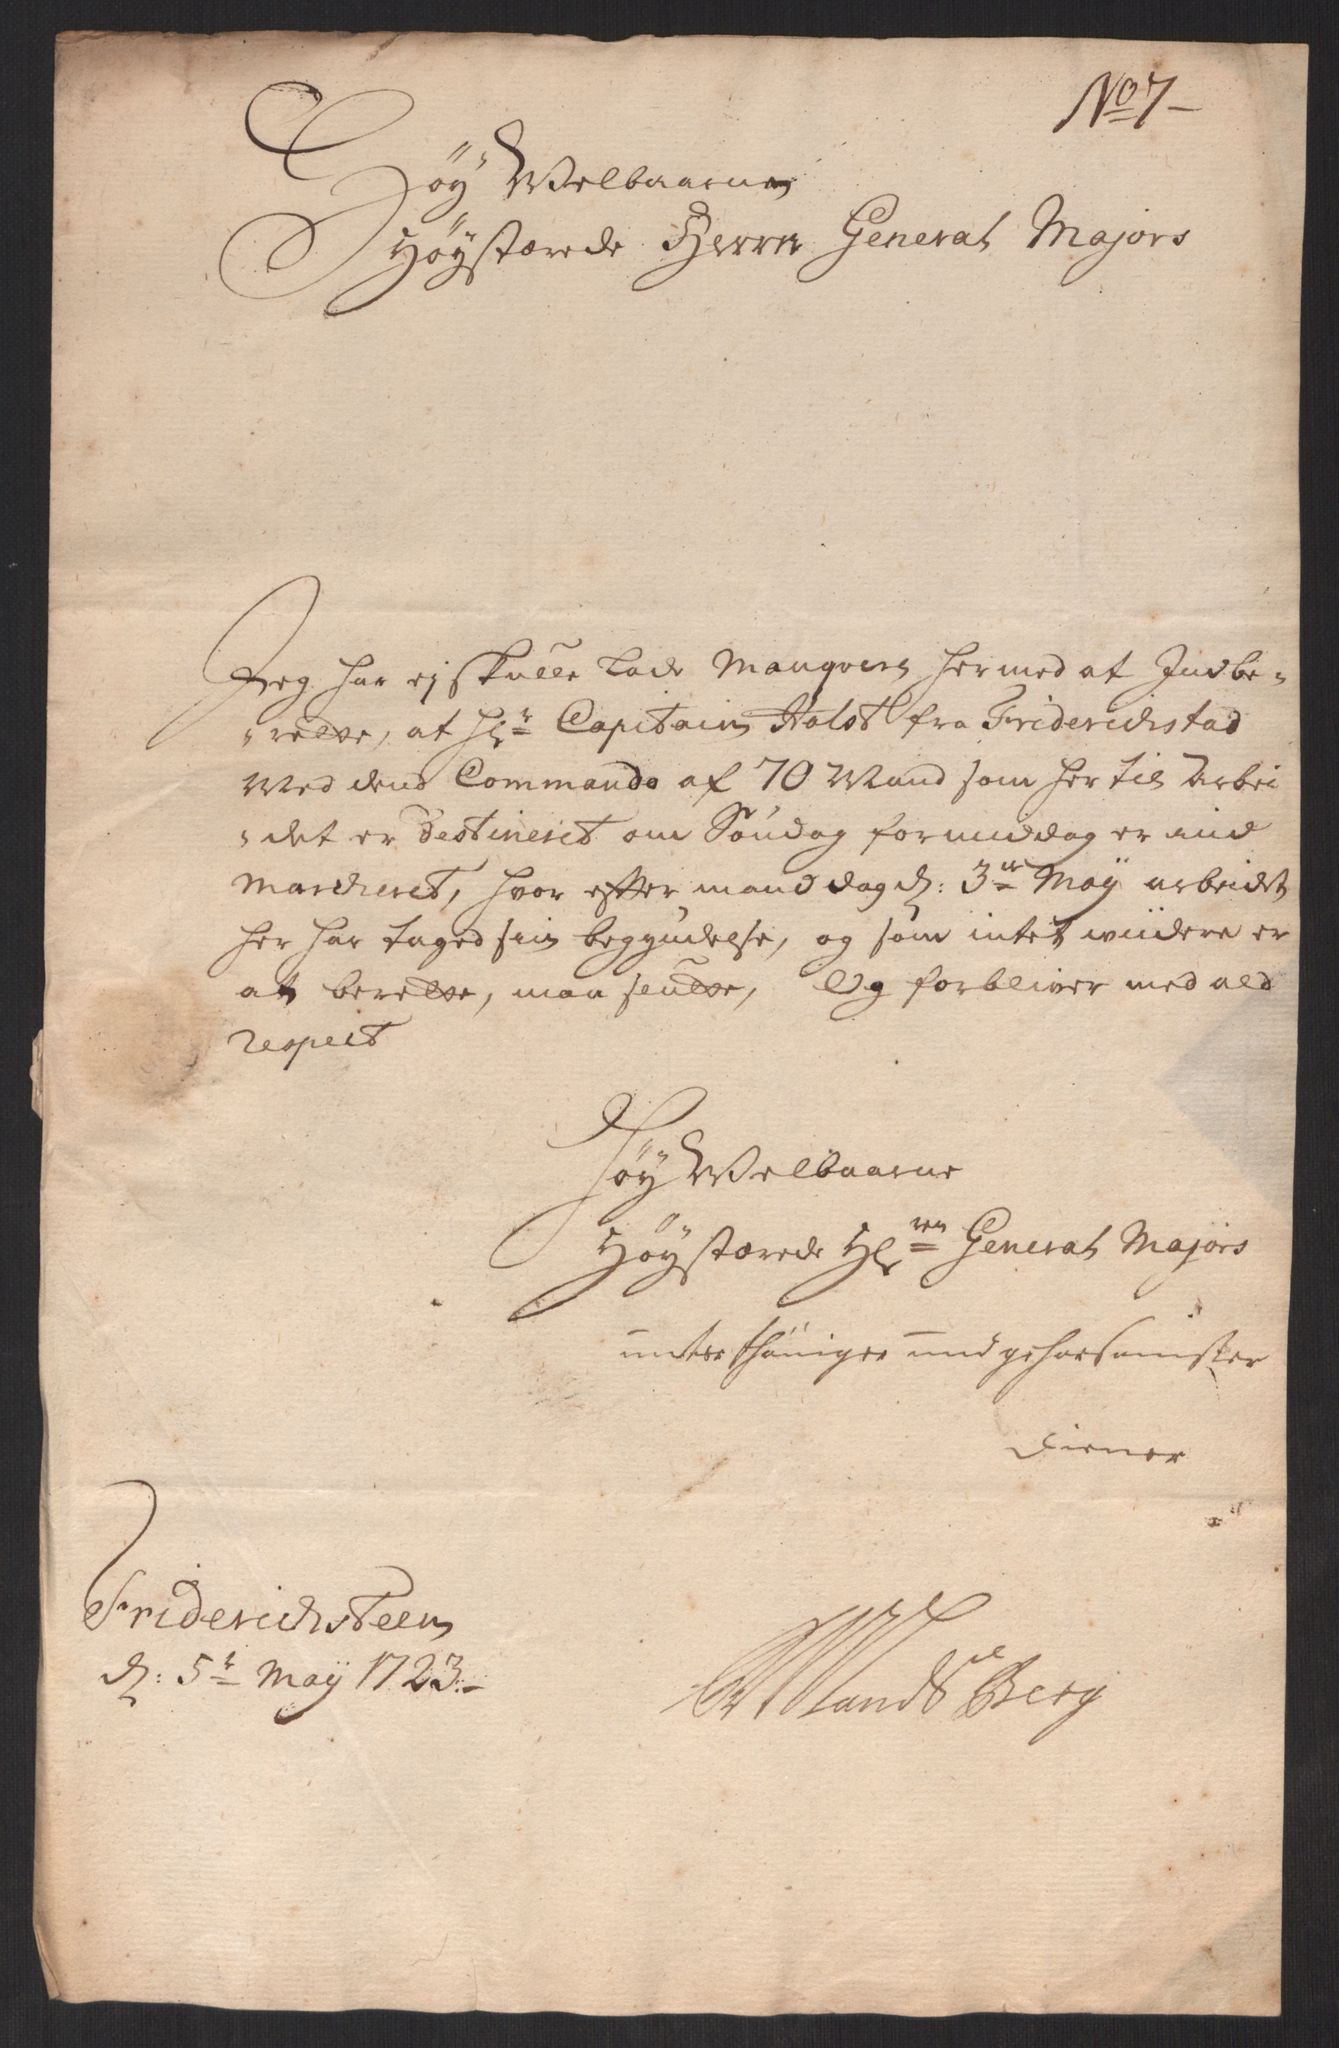 No 7
Höy Welbaarne
Höystærede Herrr General Majors
Jeg har ej skulle lade Manqvere hermed at Indbe-
-rette, at Hr Capitain Holst fra Friderichstad
Med dend Commando af 70 Mand som her til Arbei
-det er destineret om Söndag formiddag er ind
Marcheret, hvor efter mandag d: 3te May arbeidet
her har taged sin begyndelse, og som intet widere er
at berette, man slutte, Og forbliver med ald
respect
Höy Welbaarne
Höystærede Hrren General Majors
unterthäniger und gehorsamster
diener
Friderichsteen
d: 5t May 1723.
LandsBerg